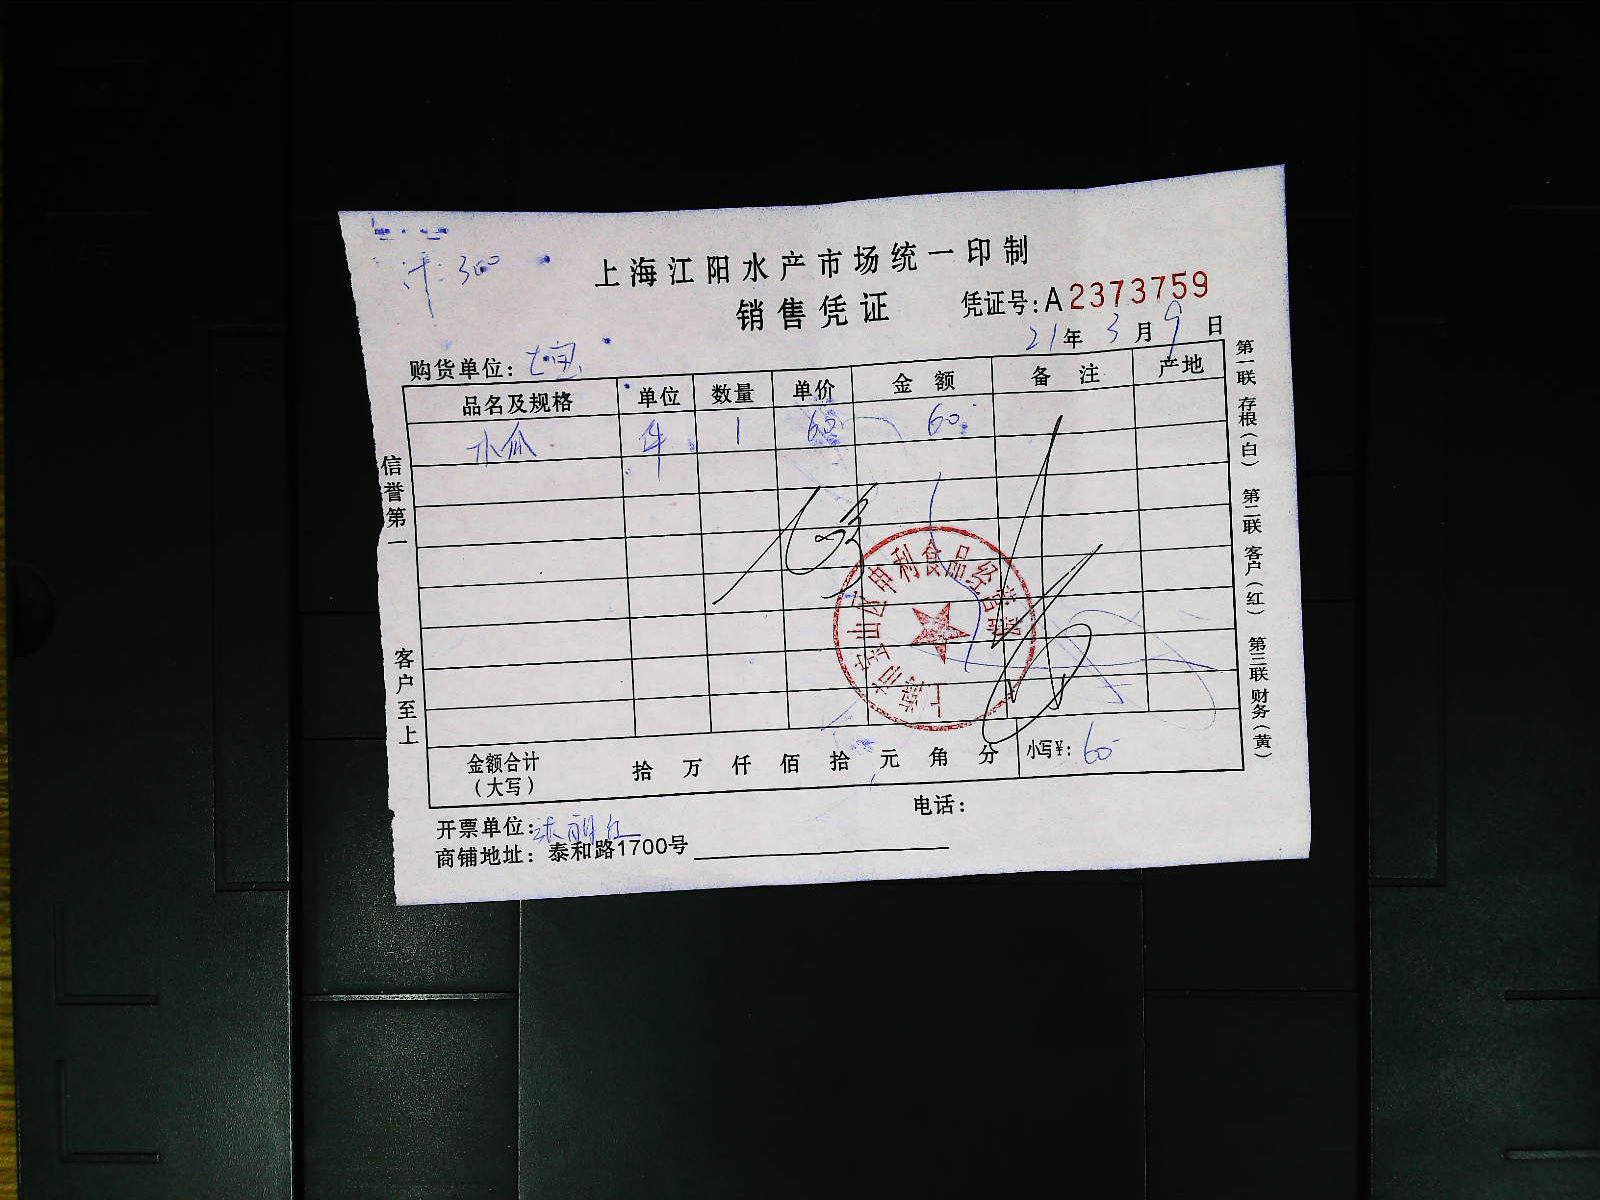 计: 300
上海江阳水产市场统一印制
销售凭证 凭证号:A2373759
21年 3月 9日
购货单位: 七宝
品名及规格 单位 数量 单价 金额 备注 产地
木瓜 件 1 60 60
信誉第一
客户至上
金额合计 拾 万 仟 佰 拾 元 角 分 小写¥: 60
（大写）
电话:
开票单位:
商铺地址: 泰和路1700号
第一联 存根(白) 第二联 客户(红) 第三联 财务(黄)
上海市宝山区申利食品经营部